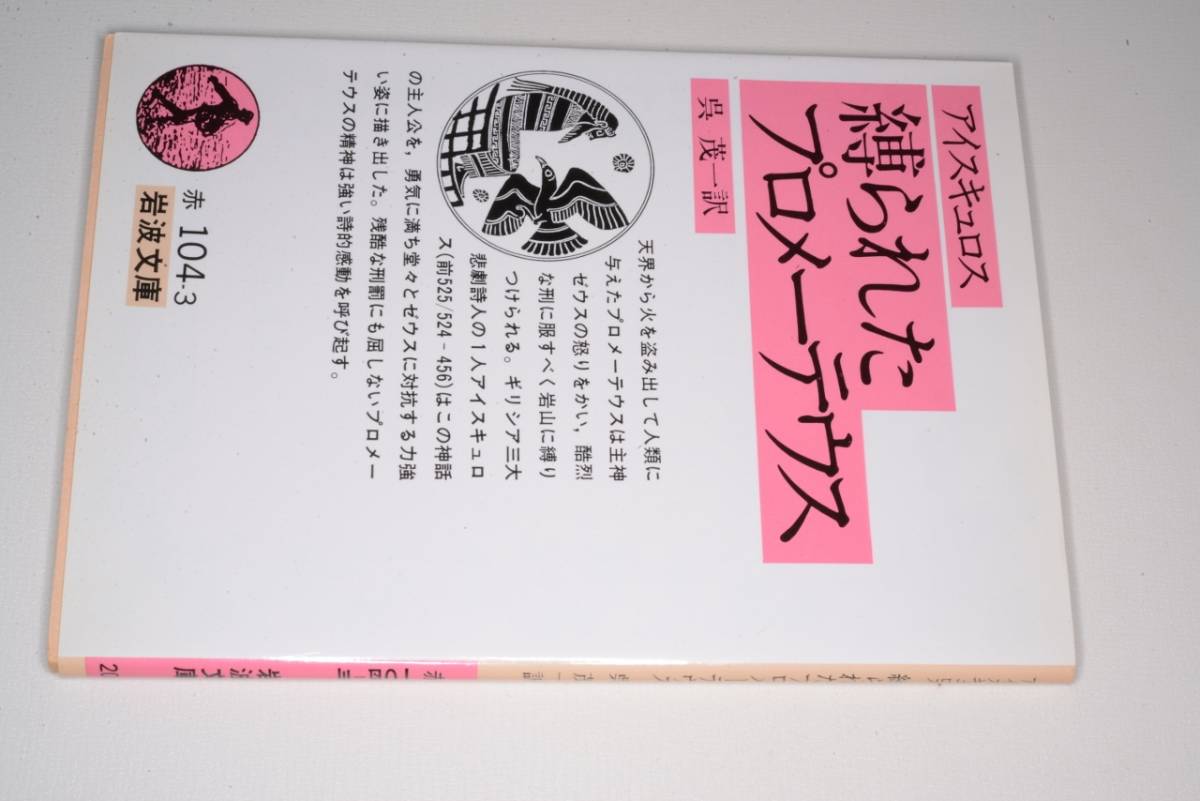 アイスキュロス
縛られた
プロメーテウス
呉 茂一訳
天界から火を盗み出して人類に
与えたプロメーテウスは主神
ゼウスの怒りをかい，酷烈
な刑に服すべく岩山に縛り
つけられる。ギリシア三大
悲劇詩人の1人アイスキュロ
ス(前525/524-456)はこの神話
の主人公を，勇気に満ち堂々とゼウスに対抗する力強
い姿に描き出した。残酷な刑罰にも屈しないプロメー
テウスの精神は強い詩的感動を呼び起す。
赤 104-3
岩波文庫